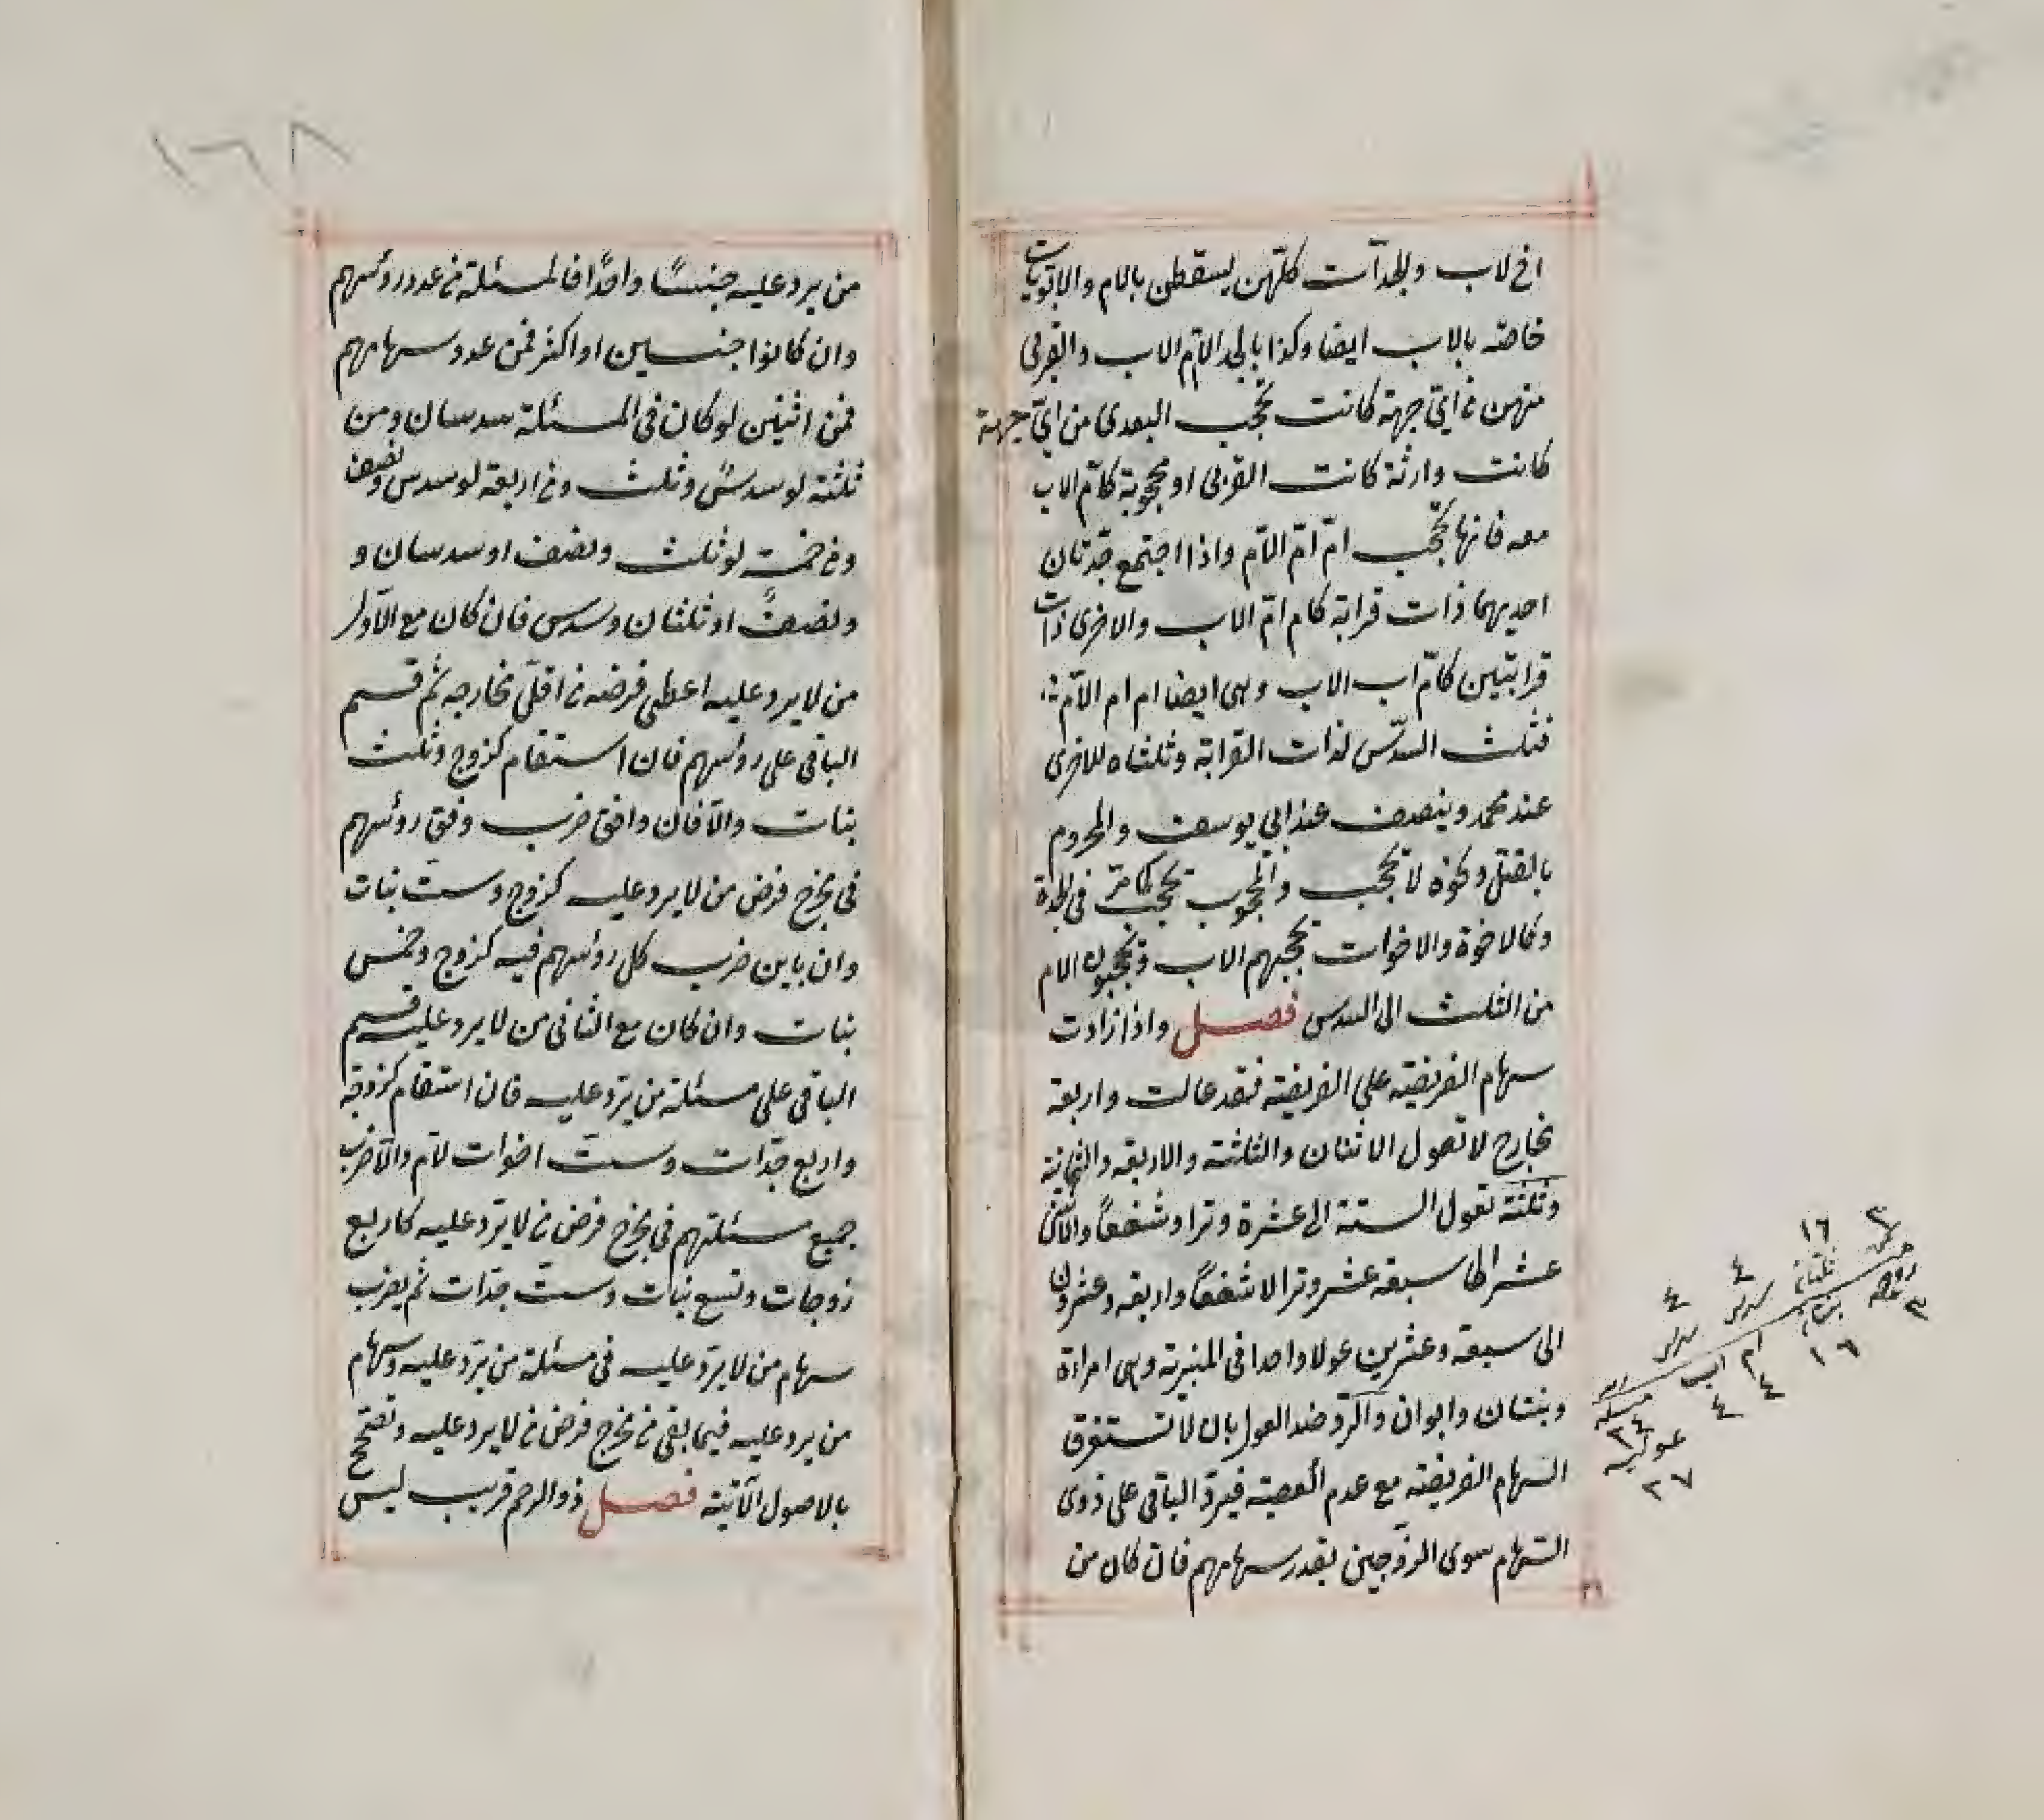 اخ لاب والجدات كلهن يسقطن بالام والابويات
خاصة بالاب ايضا وكذا بالجد الا ام الاب والقربى
منهن من اي جهة كانت تحجب البعدى من اي جهة
كانت وارثة كانت القربى او محجوبة كام الاب
معه فانها تحجب ام ام الام واذا اجتمع جدتان
احديهما ذات قرابة كام ام الاب والاخرى ذات
قرابتين كام اب الاب وهى ايضا ام ام الام
فثلث السدس لذات القرابة وثلثاه للاخرى
عند محمد وينصف عند ابي يوسف والمحروم
بالقتل ونحوه لا يحجب والمحجوب يحجب كما مر في الجدة
وكالاخوة والاخوات يحجبهم الاب ويحجبون الام
من الثلث الى السدس فصل واذا زادت
سهام الفريضة على الفريضة فقد عالت واربعة
مخارج لا تعول الاثنان والثلثة والاربعة والثمانية
وثلثة تعول الستة الى عشرة وترا وشفعاً والاثنى
عشر الى سبعة عشر وترا لا شفعاً واربعة وعشرون
الى سبعة وعشرين عولا واحدا فى المنبرية وهى امراءة
وبنتان وابوان والرد ضد العول بان لا تستغرق
السهام الفريضة مع عدم العصبة فيرد الباقى على ذوى
السهام سوى الزوجين بقدر سهامهم فان كان من
٣ ١٦ ٤ ٤
ثمن ثلثان سدس سدس
زوجة بنتان ام اب
٣ ١٦ ٤ ٤
مسئلة
٢٤
عولية
٢٧
١٦٨
من يرد عليه جنساً واحداً فالمسئلة من عدد روئسهم
وان كانوا جنسين او اكثر فمن عدد سهامهم
فمن اثنين لو كان فى المسئلة سدسان ومن
ثلثة لو سدس وثلث ومن اربعة لو سدس ونصف
ومن خمسة لو ثلث ونصف او سدسان و
ونصف او ثلثان وسدس فان كان مع الاول
من لا يرد عليه اعطى فرضه من اقل مخارجه ثم قسم
الباقى على روئسهم فان استقام كزوج وثلث
بنات والا فان وافق ضرب وفق روئسهم
فى مخرج فرض من لا يرد عليه كزوج وست بنات
وان باين ضرب كل روئسهم فيه كزوج وخمس
بنات وان كان مع الثانى من لا يرد عليه قسم
الباقى على مسئلة من يرد عليه فان استقام كزوجة
واربع جدات وست اخوات لام والا ضرب
جميع مسئلتهم فى مخرج فرض من لا يرد عليه كاربع
زوجات وتسع بنات وست جدات ثم يضرب
سهام من لا يرد عليه فى مسئلة من يرد عليه وسهام
من يرد عليه فيما بقى من مخرج فرض من لا يرد عليه وتصحح
بالاصول الآتية فصل ذو الرحم قريب ليس